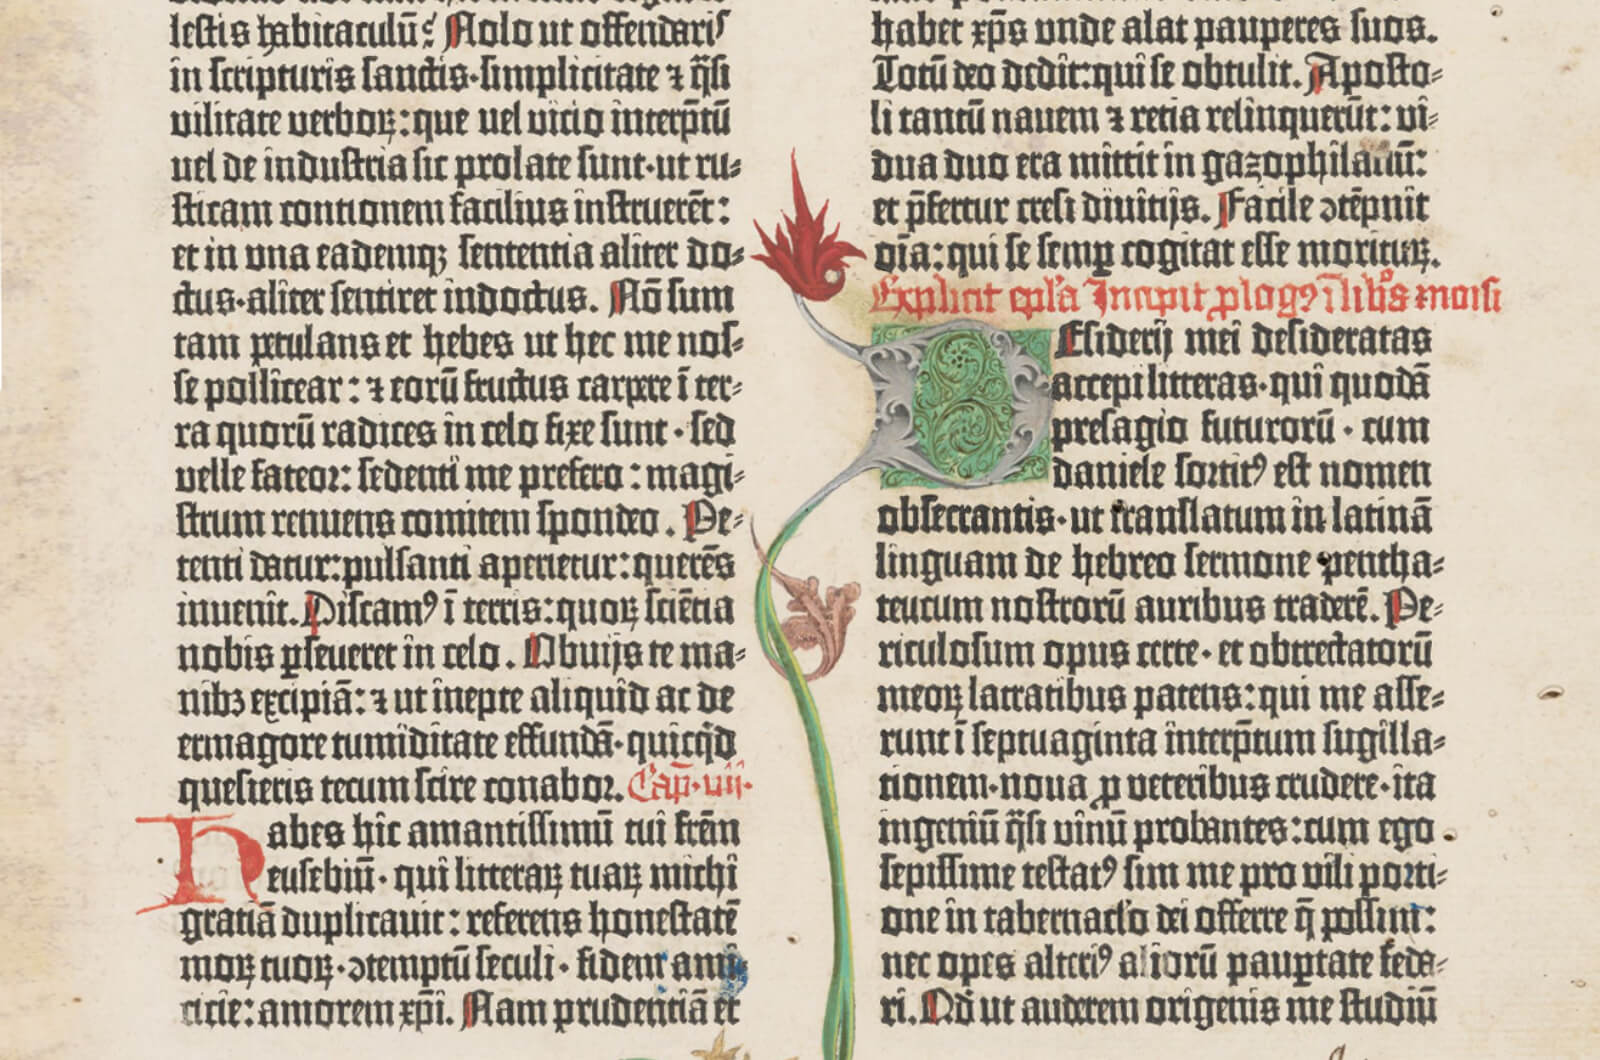 lestis habitaculū? Nolo ut offendaris
in scripturis sanctis·simplicitate ⁊ q̄si
vilitate verboꝝ: que vel vicio interp̄tū
vel de industria sic prolate sunt·ut ru-
sticam contionem facilius instruerēt:
et in una eademqꝫ sententia aliter do-
ctus·aliter sentiret indoctus. Nō sum
tam petulans et hebes ut hec me nos-
se pollicear: ⁊ eorū fructus carpere ī ter-
ra quorū radices in celo fixe sunt·sed
velle fateor: sedenti me prefero: magi-
strum renuens comitem spondeo. Pe-
tenti datur: pulsanti aperietur: querēs
invenit. Discamꝰ ī terris: quoꝝ sciētia
nobis ꝑseveret in celo. Obuijs te ma-
nibꝫ excipiā: ⁊ ut inepte aliquid ac de
ermagore tumiditate effundā·quicq̄d
quesieris tecum scire conabor. Cap̄·vii·
Habes hic amantissimū tui frēm
eusebiū·qui litteraꝝ tuaꝝ michi
gratiā duplicavit: referens honestatē
moꝝ tuoꝝ·ↄtemptū seculi·fidem ami-
cicie: amorem xp̄i. Nam prudentiā et
habet xp̄s unde alat pauperes suos.
Totū deo dedit: qui se obtulit. Aposto-
li tantū navem ⁊ retia relinquerūt: vi-
dua duo era mittit in gazophilaciū:
et p̄fertur cresi divitijs. Facile ↄtēpnit
oīa: qui se semꝑ cogitat esse morituꝝ.
Explicit ep̄la Incipit ꝓlogꝰ ī lib'os moisi
Desiderij mei desideratas
accepi litteras·qui quodā
presagio futurorū·cum
daniele sortitꝰ est nomen
obsecrantis·ut translatum in latinā
linguam de hebreo sermone pentha-
teucum nostrorū auribus traderē. Pe-
riculosum opus certe·et obtrectatorū
meoꝝ latratibus patens: qui me asse-
runt ī septuaginta interp̄tum sugilla-
tionem·nova ꝓ veteribus cudere·ita
ingeniū q̄si vinū probantes: cum ego
sepissime testatꝰ sim me pro vili porti-
one in tabernac'lo dei offerre q̄ possim:
nec opes alteriꝰ aliorū paupertate feda-
ri. Qd̄ ut auderem origenis me studiū